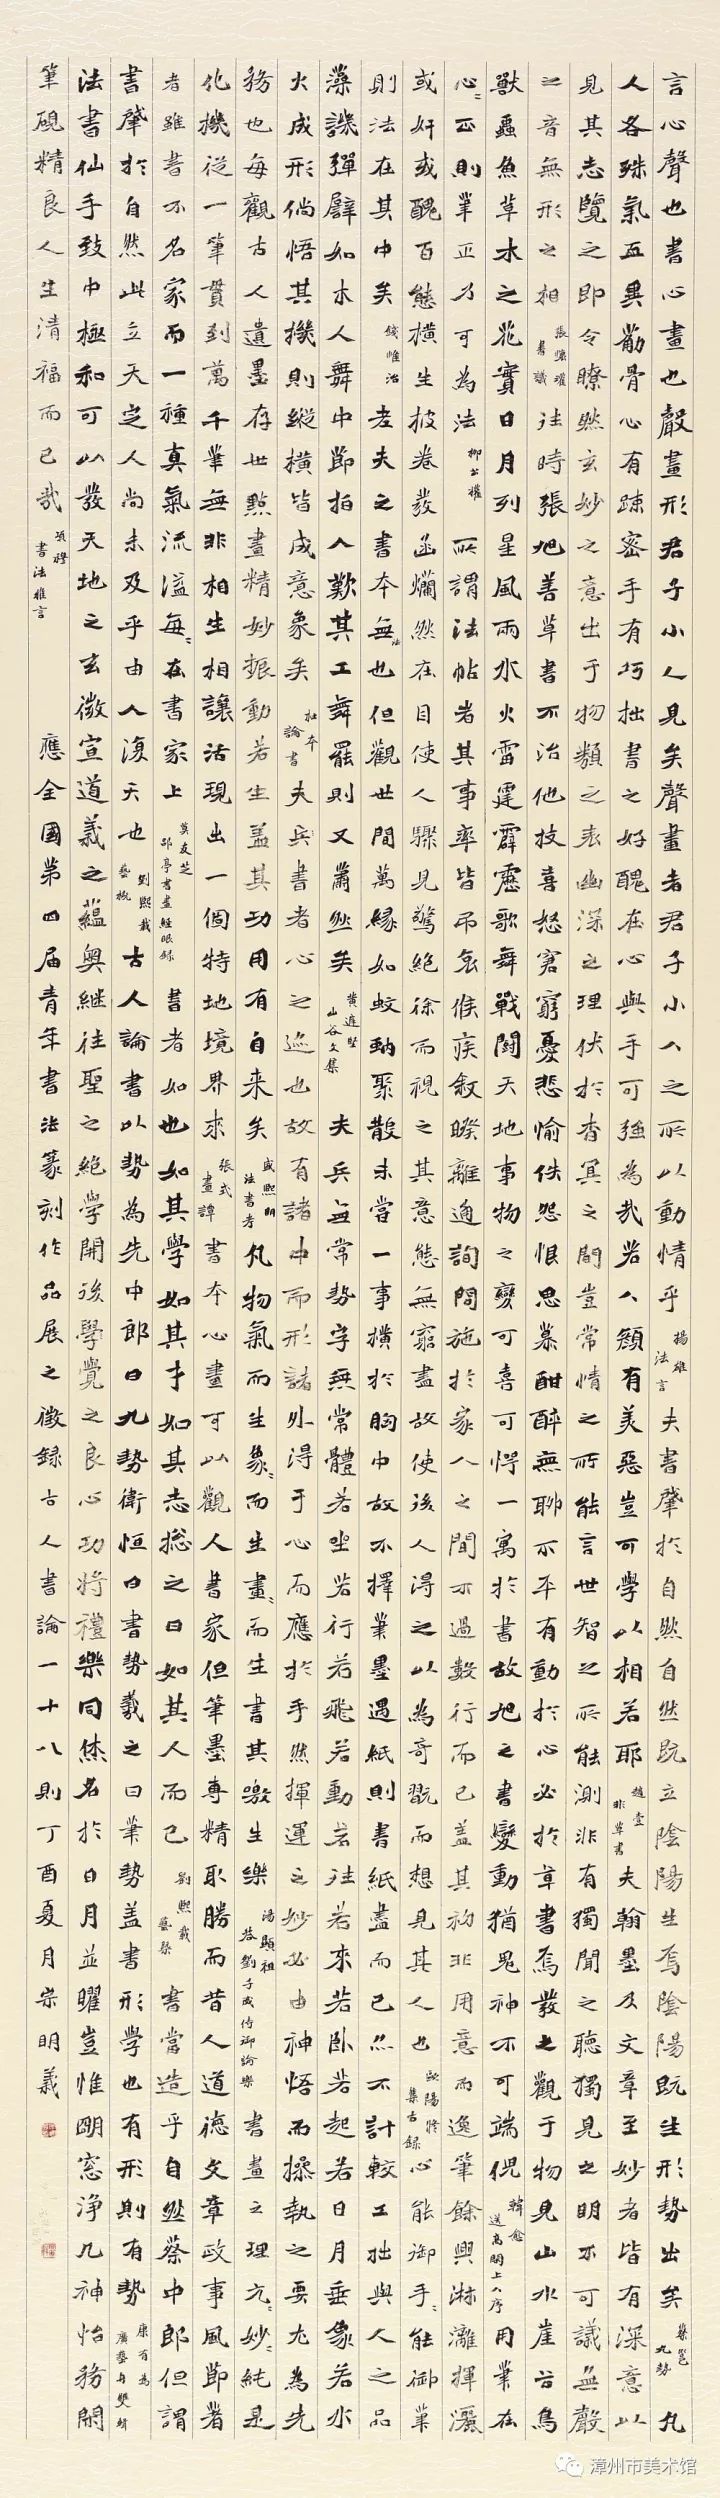 言心聲也書心畫也聲畫形君子小人見矣聲畫者君子小人之所以動情乎 揚雄 法言 夫書肇於自然自然既立陰陽生焉陰陽既生形勢出矣 蔡邕 九勢 凡
人各殊氣血異筋骨心有疎密手有巧拙書之好醜在心與手可強為哉若人顏有美惡豈可學以相若耶 趙壹 非草書 夫翰墨及文章至妙者皆有深意以
見其志覽之即令瞭然玄妙之意出于物類之表幽深之理伏於杳冥之間豈常情之所能言世智之所能測非有獨聞之聽獨見之明不可議無聲
之音無形之相 張懷瓘 書議 往時張旭善草書不治他技喜怒窘窮憂悲愉佚怨恨思慕酣醉無聊不平有動於心必於草書焉發之觀于物見山水崖谷鳥
獸蟲魚草木之花實日月列星風雨水火雷霆霹靂歌舞戰鬪天地事物之變可喜可愕一寓於書故旭之書變動猶鬼神不可端倪 韓愈 送高閑上人序 用筆在
心〻正則筆正乃可為法 柳公權 所謂法帖者其事率皆吊哀候疾敘睽離通詢問施於家人之間不過數行而已蓋其初非用意而逸筆餘興淋灕揮灑
或妍或醜百態橫生披卷發函爛然在目使人驟見驚絕徐而視之其意態無窮盡故使後人得之以為奇翫而想見其人也 歐陽修 集古錄 心能御手〻能御筆
則法在其中矣 錢惟治 老夫之書本無法也但觀世間萬緣如蚊蚋聚散未嘗一事橫於胸中故不擇筆墨遇紙則書紙盡而已亦不計較工拙與人之品
藻譏彈譬如木人舞中節拍人歎其工舞罷則又蕭然矣 黃庭堅 山谷文集 夫兵無常勢字無常體若坐若行若飛若動若往若來若臥若起若日月垂象若水
火成形倘悟其機則縱橫皆成意象矣 杜本 論書 夫兵書者心之迹也故有諸中而形諸外得于心而應於手然揮運之妙必由神悟而操執之要尤為先
務也每觀古人遺墨存世點畫精妙振動若生蓋其功用有自来矣 盛熙明 法書考 凡物氣而生象〻而生畫〻而生書其噭生樂 湯顯祖 答劉子威侍御論樂 書畫之理亢〻妙〻純是
化機從一筆貫到萬千筆無非相生相讓活現出一個特地境界來 張式 畫譚 書本心畫可以觀人書家但筆墨專精取勝而昔人道德文章政事風節著
者雖書不名家而一種真氣流溢每〻在書家上 莫友芝 郘亭書畫經眼錄 書者如也如其學如其才如其志總之曰如其人而已 劉熙載 藝槩 書當造乎自然蔡中郎但謂
書肇於自然此立天定人尚未及乎由人復天也 劉熙載 藝概 古人論書以勢為先中郎曰九勢衛恒曰書勢羲之曰筆勢蓋書形學也有形則有勢 康有為 廣藝舟雙楫
法書仙手致中極和可以發天地之玄微宣道義之蘊奧繼往聖之絕學開後學覺之良心功將禮樂同休名於日月並曜豈惟明窓淨几神怡務閑
筆硯精良人生清福而已哉 項穆 書法雅言 應全國第四届青年書法篆刻作品展之徵錄古人書論一十八則丁酉夏月宗明義
漳州市美术馆